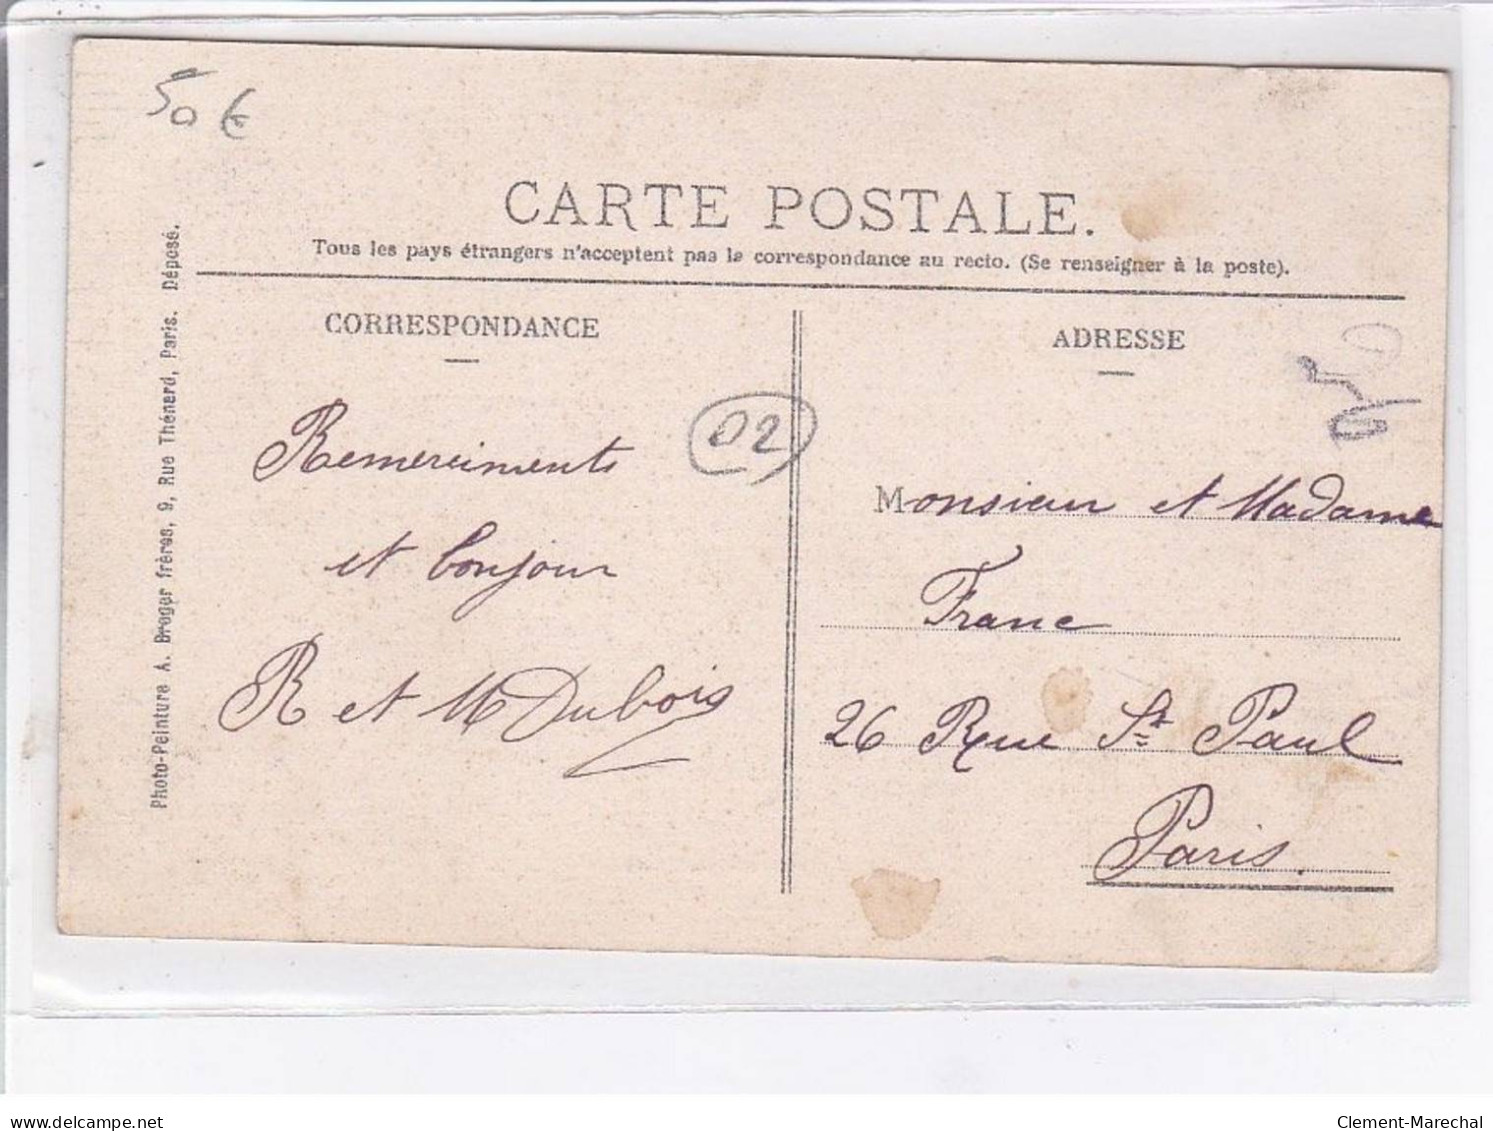 50 €
CARTE POSTALE.
Tous les pays étrangers n'acceptent pas la correspondance au recto. (Se renseigner à la poste).
CORRESPONDANCE
ADRESSE
Photo-Peinture A. Breger frères, 9, Rue Thénard, Paris. Déposé.
02
Remerciments
et bonjour
R et M Dubois
Monsieur et Madame
Franc
26 Rue St Paul
Paris.
delcampe.net
Clement-Marechal